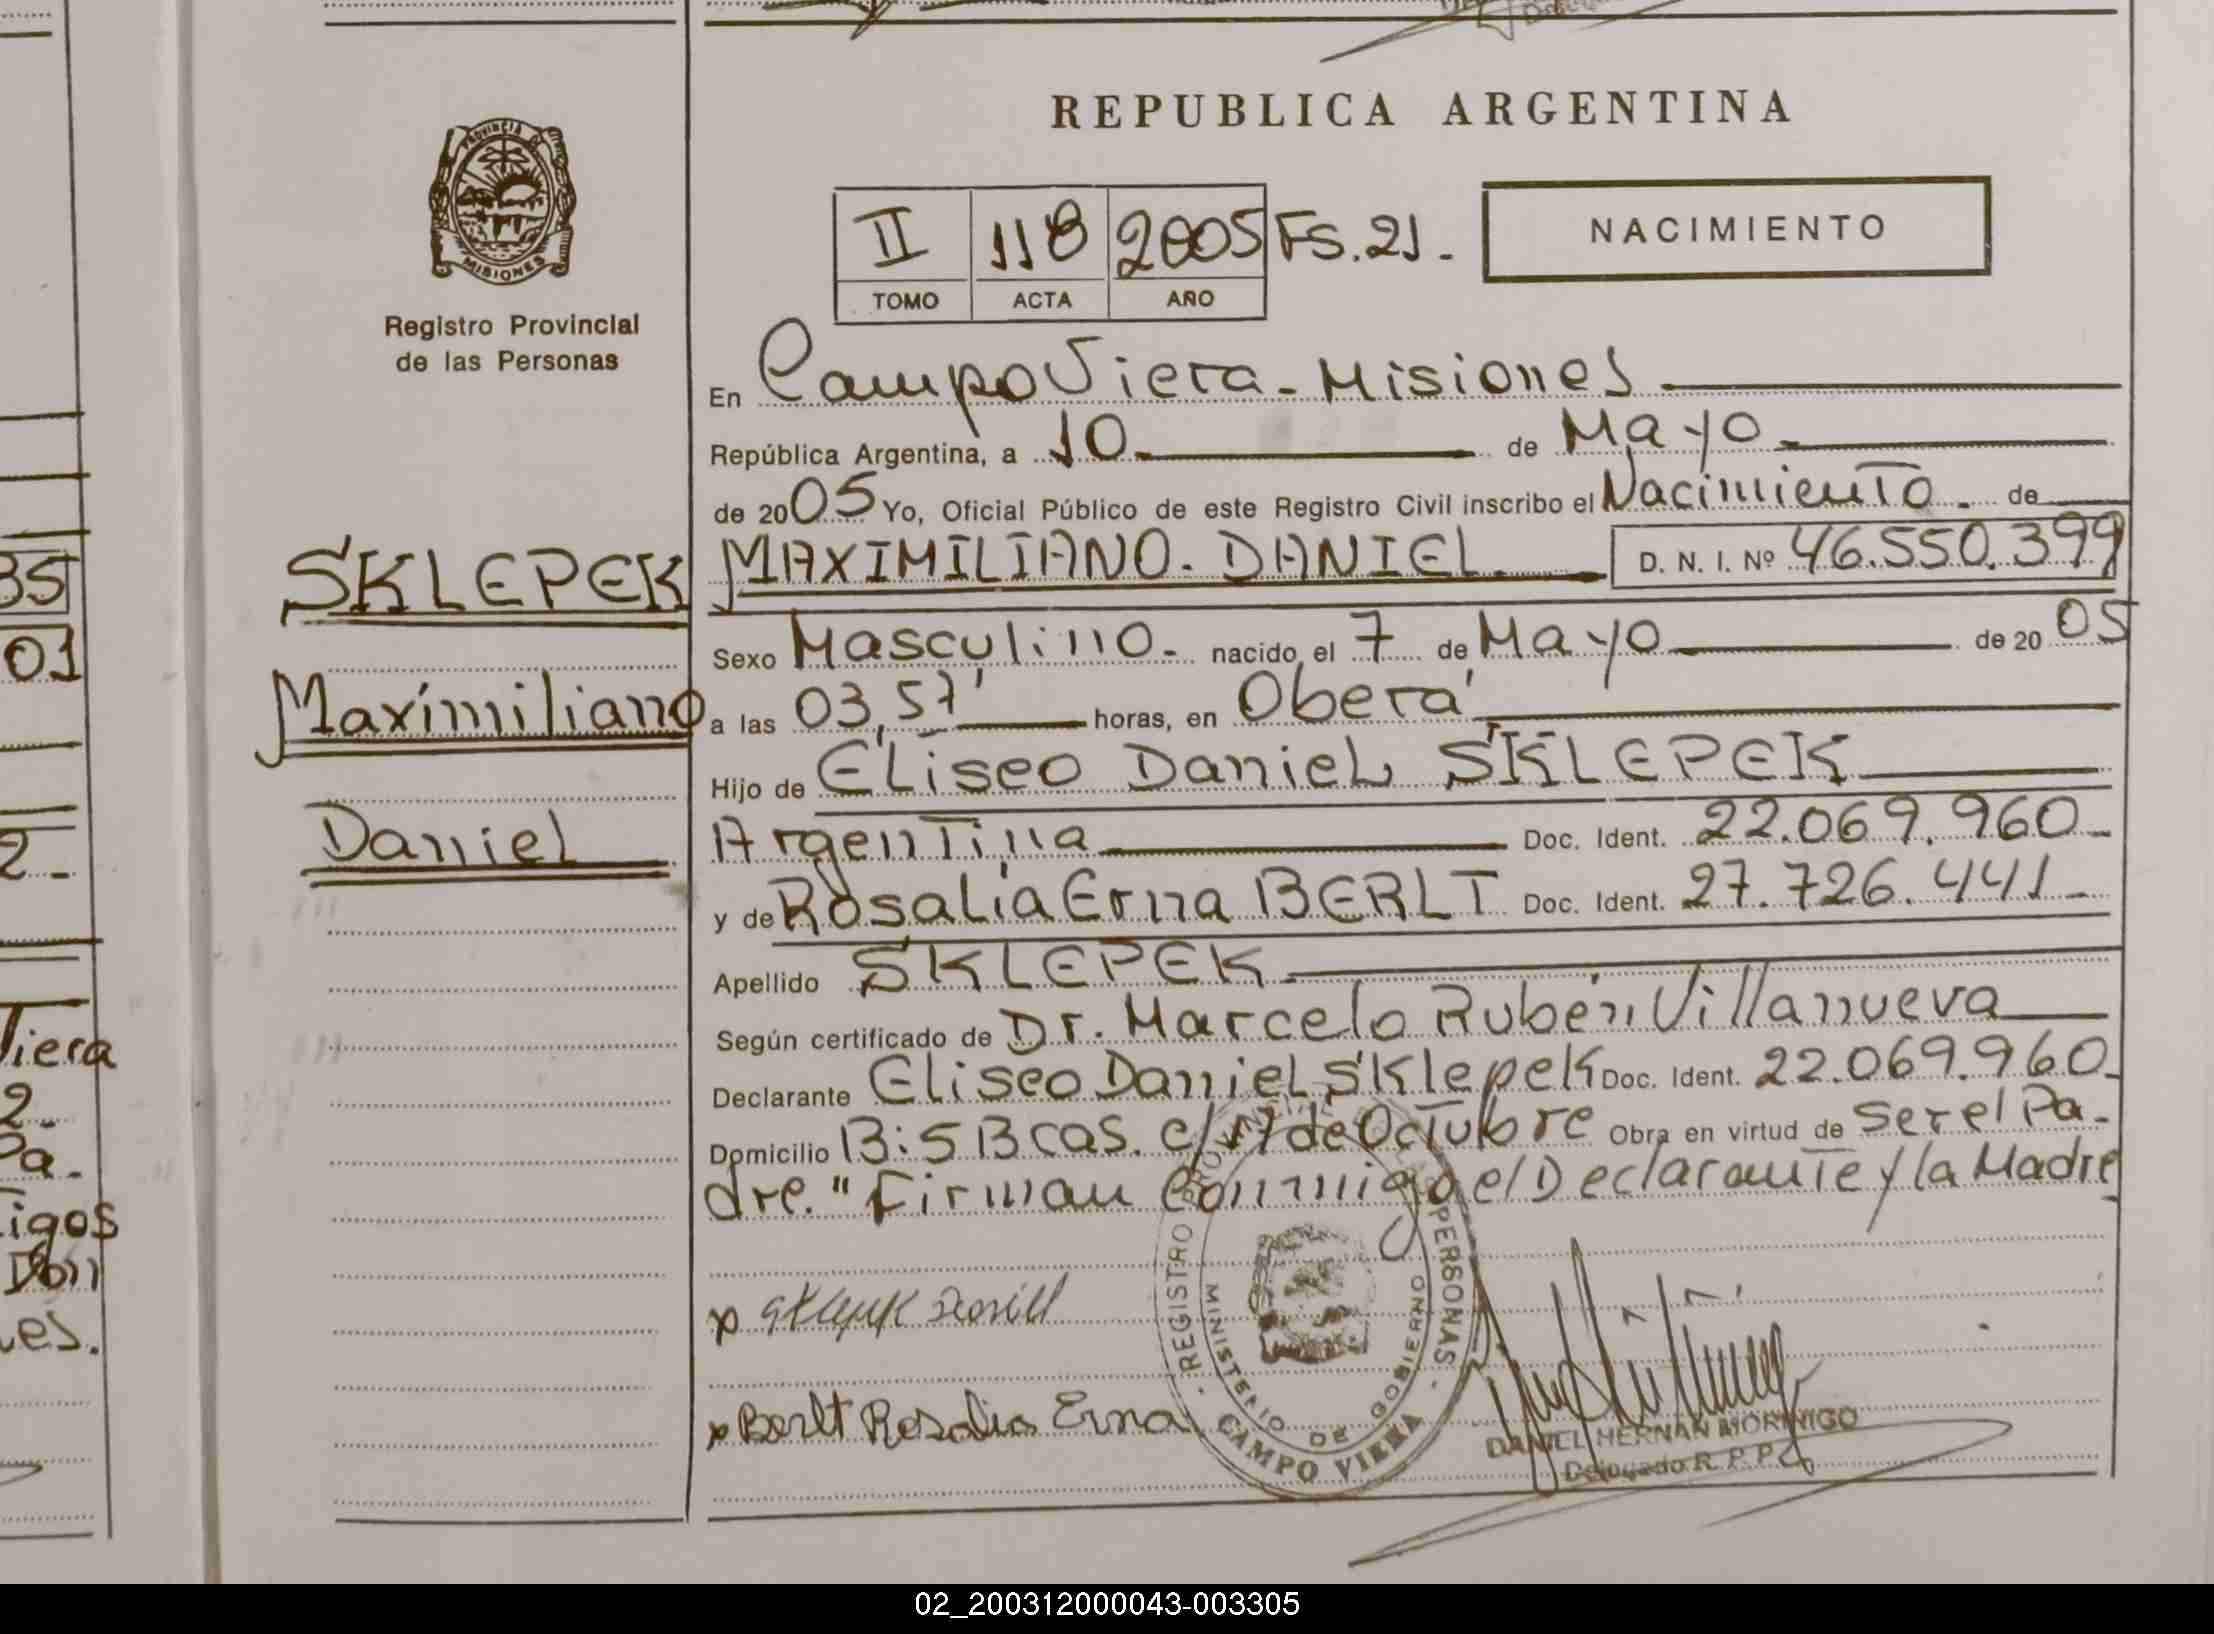 REPUBLICA ARGENTINA
PROVINCIA DE
MISIONES
Registro Provincial
de las Personas
II 118 2005 Fs. 21.
TOMO ACTA AÑO
NACIMIENTO
En Campo Viera - Misiones
República Argentina, a 10 de Mayo
de 2005 Yo, Oficial Público de este Registro Civil inscribo el Nacimiento de
SKLEPEK
Maximiliano
Daniel
MAXIMILIANO DANIEL D. N. I. Nº 46.550.399
Sexo Masculino nacido el 7 de Mayo de 2005
a las 03,57' horas, en Oberá
Hijo de Eliseo Daniel SKLEPEK
Argentina Doc. Ident. 22.069.960
y de Rosalia Erna BERLT Doc. Ident. 27.726.441
Apellido SKLEPEK
Según certificado de Dr. Marcelo Rubén Villanueva
Declarante Eliseo Daniel Sklepek Doc. Ident. 22.069.960
Domicilio B: 5 B cas. c/ 17 de Octubre Obra en virtud de ser el Pa-
dre." Firman Conmigo el Declarante y la Madre
x Berlt Rosalia Erna
REGISTRO PERSONAS
MINISTERIO DE GOBIERNO
CAMPO VIERA
DANIEL HERNAN MORINIGO
Delegado R. P. P.
35
01
2-
Viera
2-
Pa-
igos
Don
es.
02_200312000043-003305